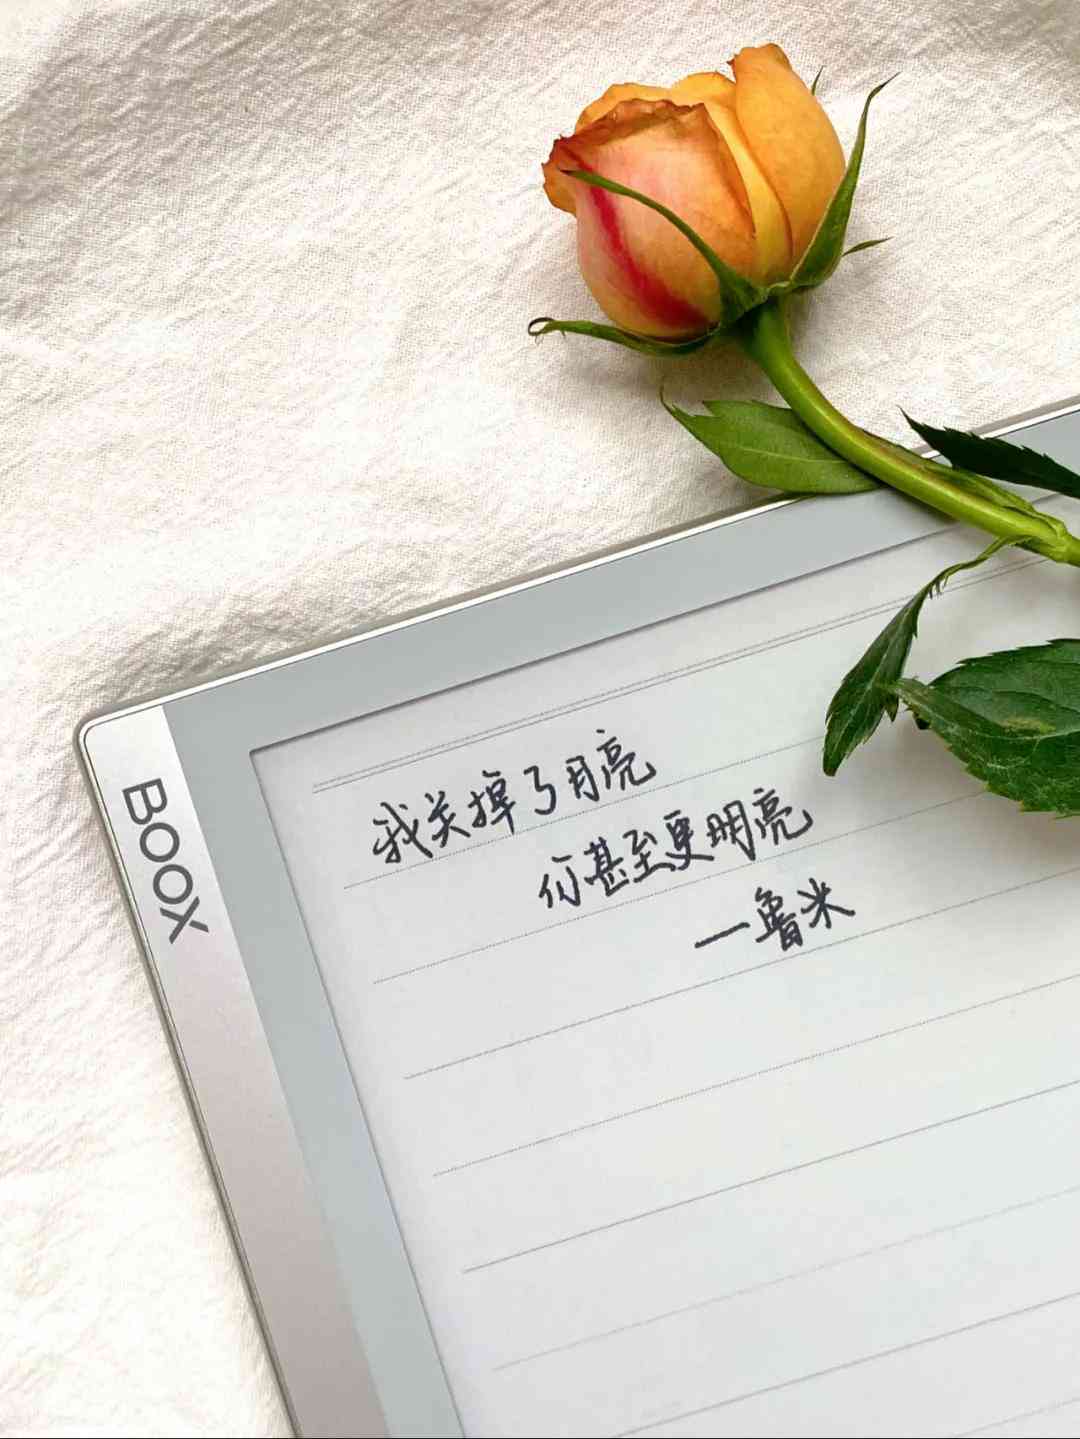 BOOX
我关掉了月亮
你甚至更明亮
—鲁米